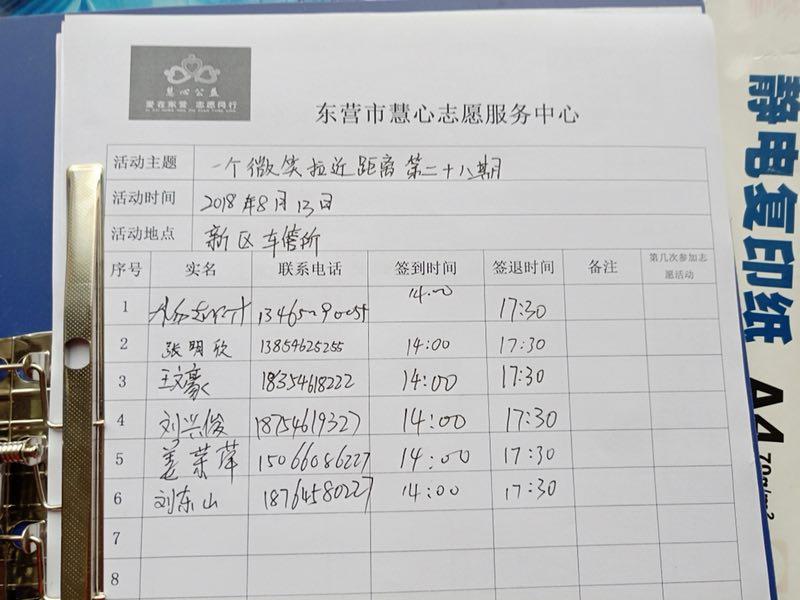 慧心公益
爱在东营 志愿同行
东营市慧心志愿服务中心
活动主题 一个微笑拉近距离第二十八期
活动时间 2018年8月13日
活动地点 新区车管所
序号 实名 联系电话 签到时间 签退时间 备注 第几次参加志愿活动
1 14:00 17:30
2 张明欣 13854625255 14:00 17:30
3 王文豪 18354618222 14:00 17:30
4 刘兴俊 18754619327 14:00 17:30
5 姜荣萍 15066086227 14:00 17:30
6 刘东山 18764580227 14:00 17:30
7
8
静电复印纸
A4
70g/m2